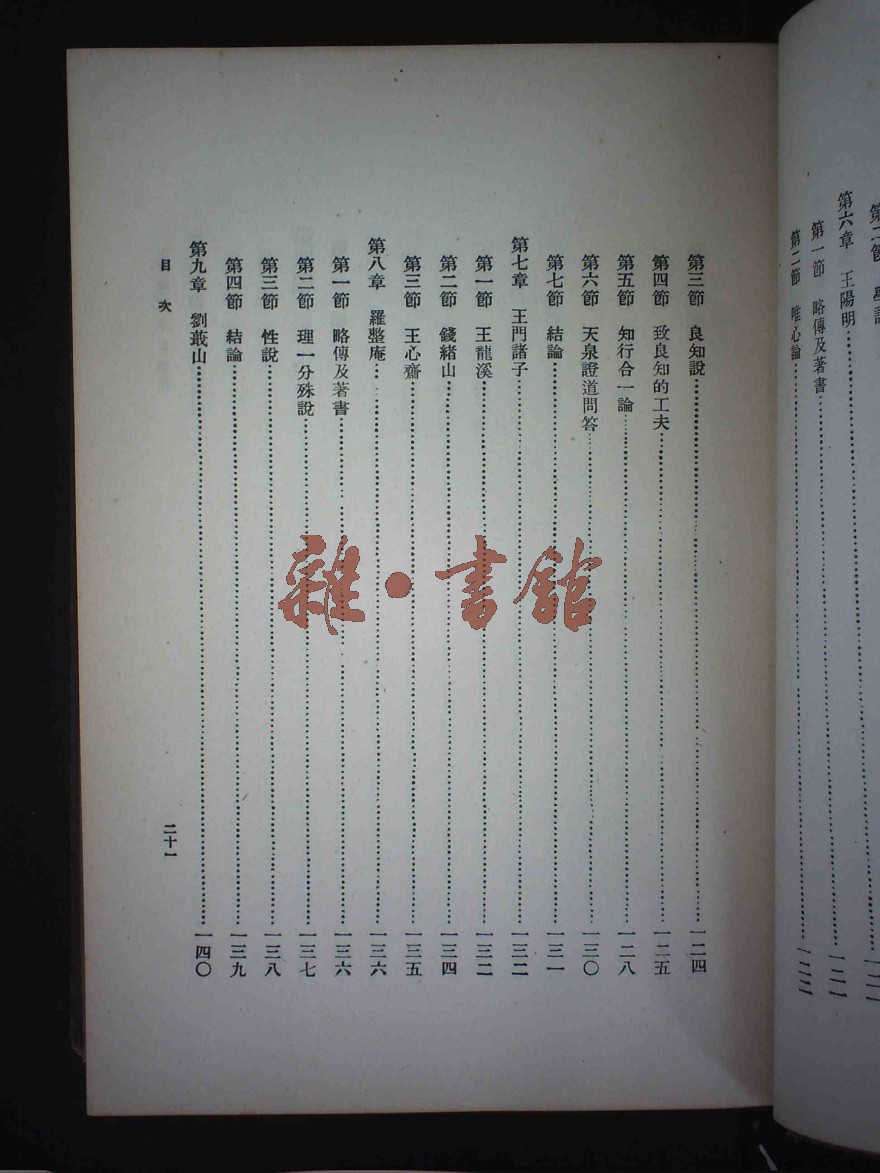 第六章　王陽明……一二一
第一節　略傳及著書……一二一
第二節　唯心論……一二二
第三節　良知說……一二四
第四節　致良知的工夫……一二五
第五節　知行合一論……一二八
第六節　天泉證道問答……一三〇
第七節　結論……一三一
第七章　王門諸子……一三二
第一節　王龍溪……一三二
第二節　錢緒山……一三四
第三節　王心齋……一三五
第八章　羅整庵……一三六
第一節　略傳及著書……一三六
第二節　理一分殊說……一三七
第三節　性說……一三八
第四節　結論……一三九
第九章　劉蕺山……一四〇
目次
二十一
雜·書館